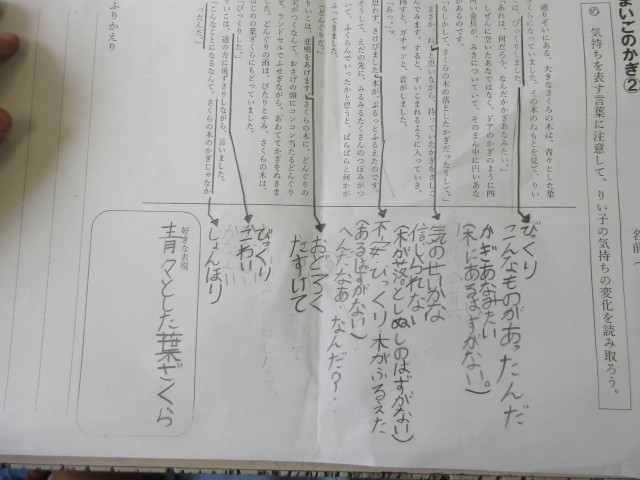 まいこのかぎ②
名前
め 気持ちを表す言葉に注意して、りい子の気持ちの変化を読み取ろう。
通りぞいにある、大きなさくらの木は、青々とした葉
さくらになっていました。その木のねもとを見て、りい
こは、びっくりしました。
「あれは、何だろう。なんだかかぎあなみたい。」
しぜんに空いたあなではなく、ドアのかぎのように四
角い金具が、みきについていて、そのまん中に円いあな
があるのです。
「もしかして、さくらの木の落としたかぎだったりして。」
まさかね、と思いながら、持っていたかぎをさしこ
んでみます。すると、すいこまれるように入っていき、
回すと、ガチャンと、音がしました。
「あっ。」
思わず、さけびました。木が、ぶるっとふるえたのです。
そうして、えだの先に、みるみるたくさんのつぼみがつ
いて、ふくらんでいったかと思うと、ばらばらと何かが
ふってきました。
「どんぐりだ。」
りいこは、悲鳴をあげます。さくらの木に、どんぐりの
頭にコンコン当たるどんぐり
を、ランドセルでふせぎながら、あわててかぎをぬきま
した。どんぐりの雨は、ぴたりとやみ、さくらの木は、
はじめの葉ざくらにもどっていました。
「びっくりした。」
りいこは、道の方に後ずさりしながら、言いました。
「こんなことになるなんて。さくらの木のかぎじゃなか
ったんだ。」
びっくり
こんなものがあったんだ
かぎあなみたい
(木にあるはずがない。)
気のせいかな
信じられない
(木が落としぬしのはずがない)
不安・びっくり・木がふるえた
(あるはずがない)
へんだなあ・なんだ？
おどろく
たすけて
びっくり
こわい
しょんぼり
好きな表現
青々とした葉ざくら
ふりかえり